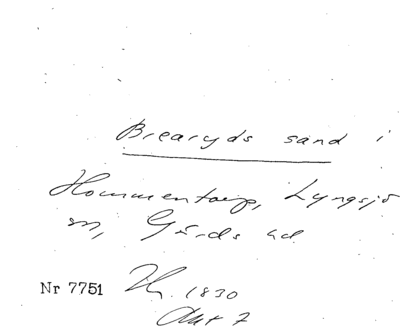 Brearyds sand i
Hommentorp, Lyngsjö
sn, Gärds hd.
Nr 7751
1830
Akt 7